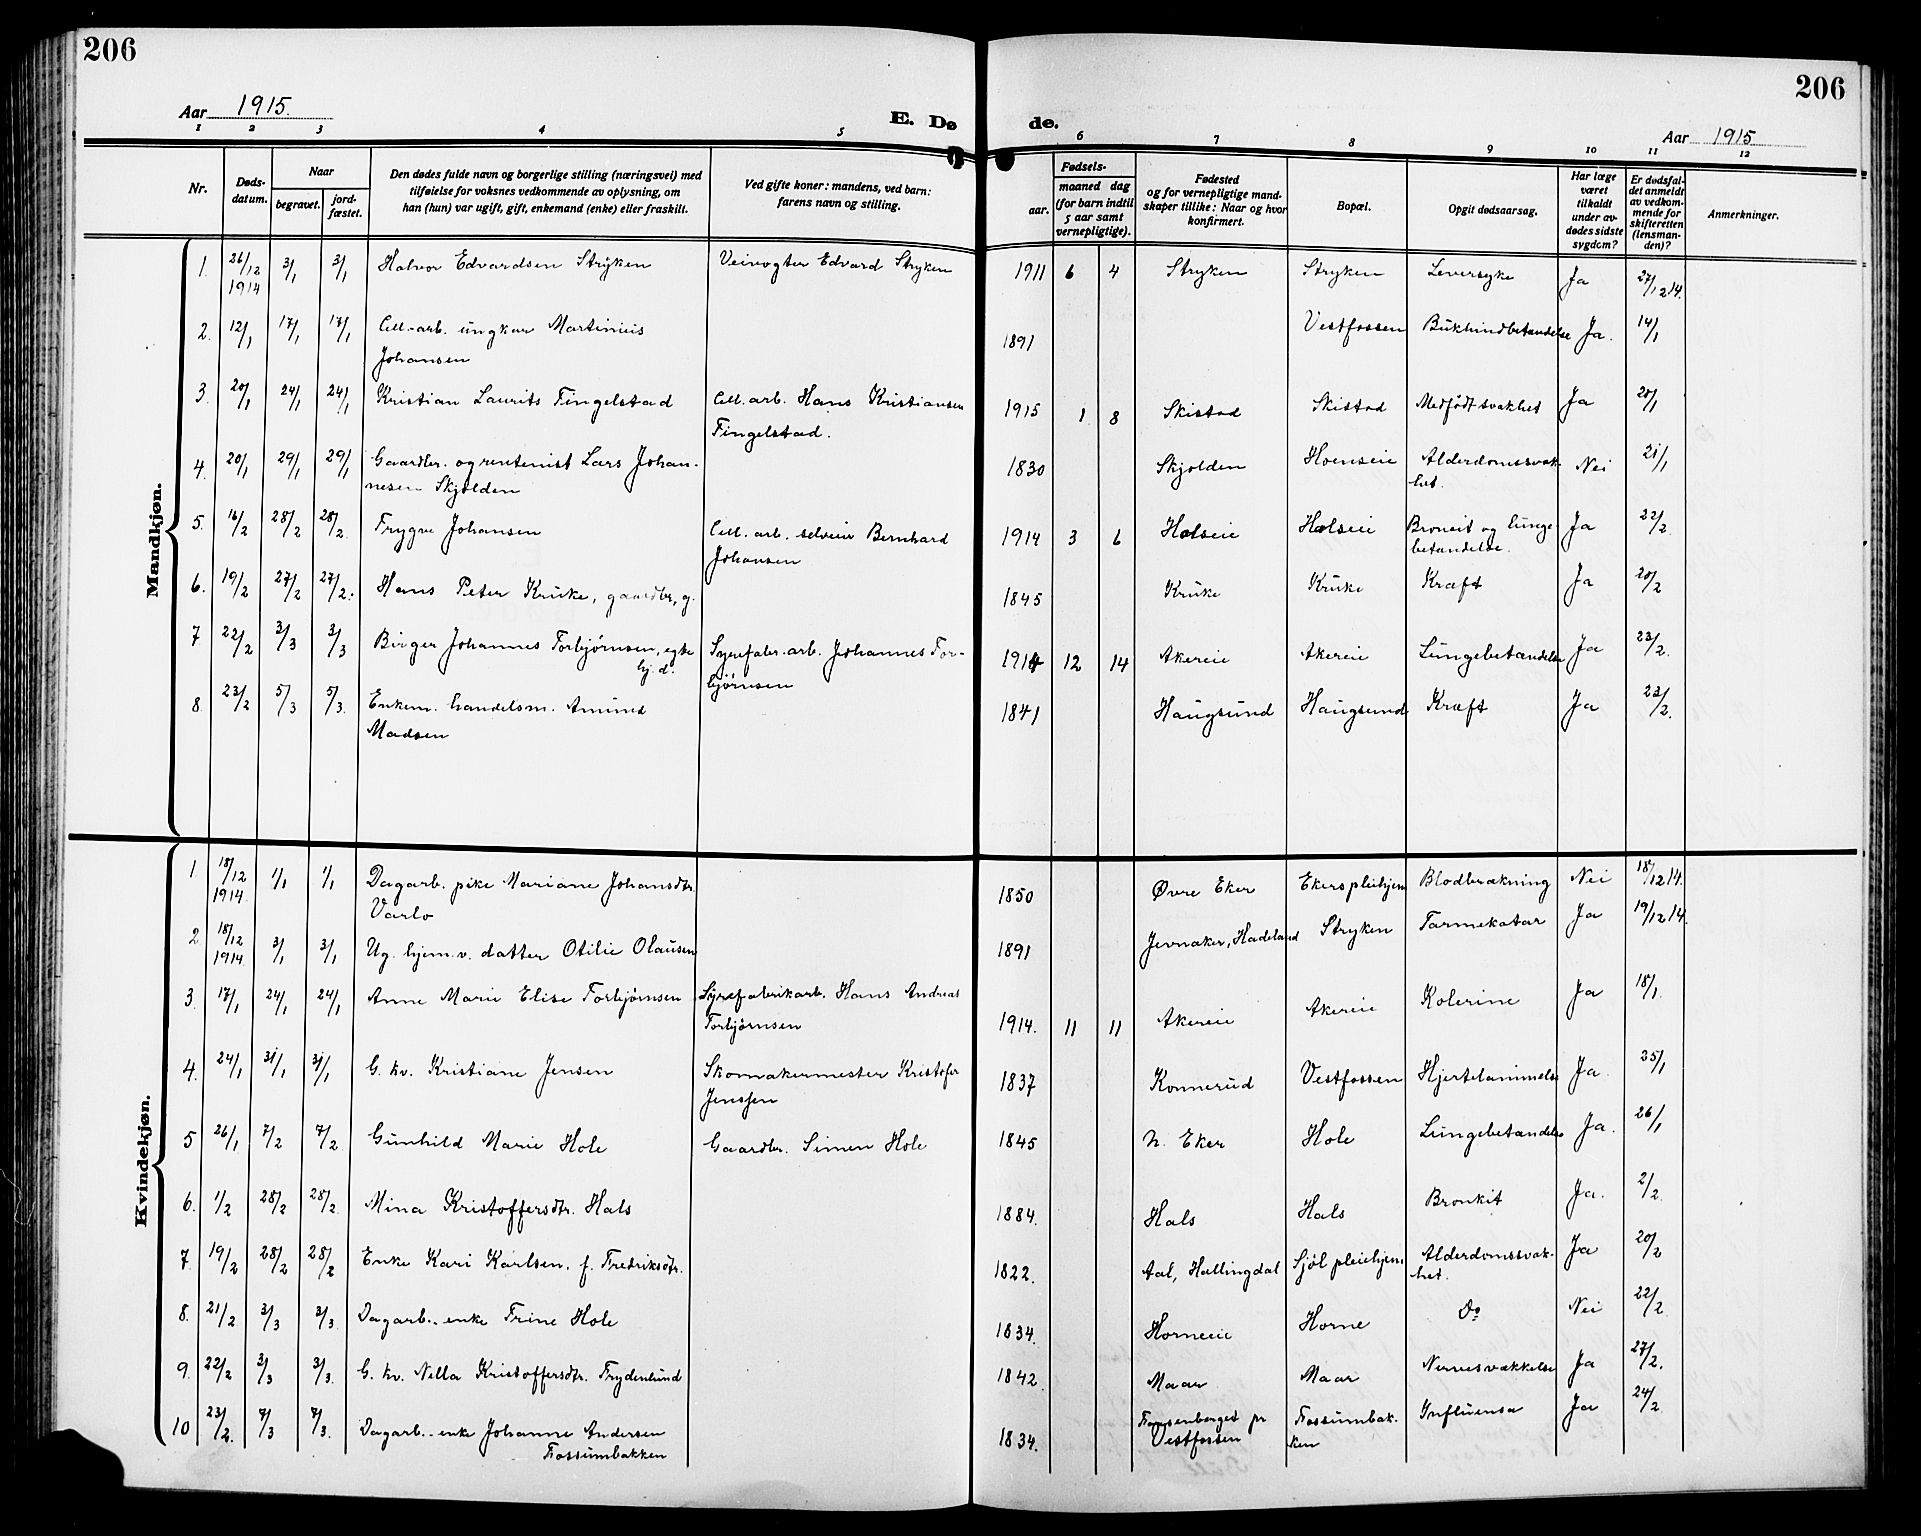 206
206
Aar 1915.
E. Døde.
Aar 1915
1 2 3 4 5 6 7 8 9 10 11 12
Nr.
Døds-
datum.
Naar
begravet.
jord-
fæstet.
Den dødes fulde navn og borgerlige stilling (næringsvei) med
tilføielse for voksnes vedkommende av oplysning, om
han (hun) var ugift, gift, enkemand (enke) eller fraskilt.
Ved gifte koner: mandens, ved barn:
farens navn og stilling.
Fødsels-
aar.
maaned dag
(for barn indtil
5 aar samt
vernepligtige).
Fødested
og for vernepligtige mand-
skaper tillike: Naar og hvor
konfirmert.
Bopæl.
Opgit dødsaarsag.
Har læge
været
tilkaldt
under av-
dødes sidste
sygdom?
Er dødsfal-
det anmeldt
av vedkom-
mende for
skifteretten
(lensman-
den)?
Anmerkninger.
Mandkjøn.
1. 26/12 1914 3/1 3/1 Halvor Edvardsen Stryken Veivogter Edvard Stryken 1911 6 4 Stryken Stryken Leversyke Ja 27/12 14.
2. 12/1 17/1 17/1 Cell-arb. ungkar Martinius 1891 Vestfossen Bukhindbetændelse Ja. 14/1
Johansen
3. 20/1 24/1 24/1 Kristian Laurits Tingelstad Cell. arb. Hans Kristiansen 1915 1 8 Skistad Skistad Medfødt svakhet Ja 20/1
Tingelstad.
4. 20/1 29/1 29/1 Gaardbr. og rentenist Lars Johan- 1830 Skjolden Hoenseie Alderdomssvak- Nei 21/1
nesen Skjolden het.
5. 16/2 28/2 28/2. Trygve Johansen Cell. arb. selveier Bernhard 1914 3 6 Halseie Halseie Broncit og lunge- Ja 22/2.
Johansen betændelse.
6. 19/2 27/2 27/2. Hans Peter Kruke, gaardbr, g. 1845 Kruke Kruke Kræft Ja 20/2
7 22/2 3/3 3/3 Birger Johannes Torbjørnsen, egte Syrefabr.-arb. Johannes Tor- 1914 12 14 Akereie Akereie Lungebetændelse Ja 23/2.
hj. d. bjørnsen
8. 23/2 5/3 5/3. Enkem. handelsm. Amund 1841 Haugsund Haugsund Kræft Ja 23/2.
Madsen
Kvindekjøn.
1 18/12 1914. 1/1 1/1 Dagarb. pike Mariane Johansdtr. 1850 Øvre Eker Ekers pleiehjem Blodbrækning Nei 18/12 14.
Varlo
2 18/12 1914. 3/1 3/1 Ug. hjem.v. datter Otilie Olausen 1891 Jevnaker, Hadeland Stryken Tarmekatar Ja 19/12 14.
3. 17/1 24/1 24/1 Anne Marie Elise Torbjørnsen Syrefabrikarb. Hans Andreas 1914. 11 11 Akereie Akereie Kolerine Ja 18/1.
Torbjørnsen
4. 24/1 31/1 31/1 G. kv. Kristiane Jensen Skomakermester Kristofer 1837 Konnerud Vestfossen Hjertelammelse Ja. 25/1
Jenssen
5 26/1 7/2 7/2 Gunhild Marie Hole Gaardbr. Simen Hole 1845 N. Eker Hole Lungebetændelse Ja. 26/1
6. 1/2 28/2 28/2. Mina Kristoffersdtr. Hals 1884. Hals Hals Bronkit Ja. 2/2.
7. 19/2 28/2 28/2 Enke Kari Karlsen. f. Fredriksdtr. 1822. Aal, Hallingdal Sjøl pleiehjem Alderdomssvak- Ja 20/2
het.
8. 21/2 3/3 3/3. Dagarb.-enke Trine Hole 1834. Horneie Horne Do Nei 22/2.
9. 22/2 3/3 3/3. G. kv. Nella Kristoffersdtr. Frydenlund 1842. Maar Maar Nervesvækkelse Ja 27/2.
10 23/2. 7/3 7/3. Dagarb.-enke Johanne Andersen 1834. Fossumbak- Influensa Ja 24/2.
Fossumbakken Vestfossen ken